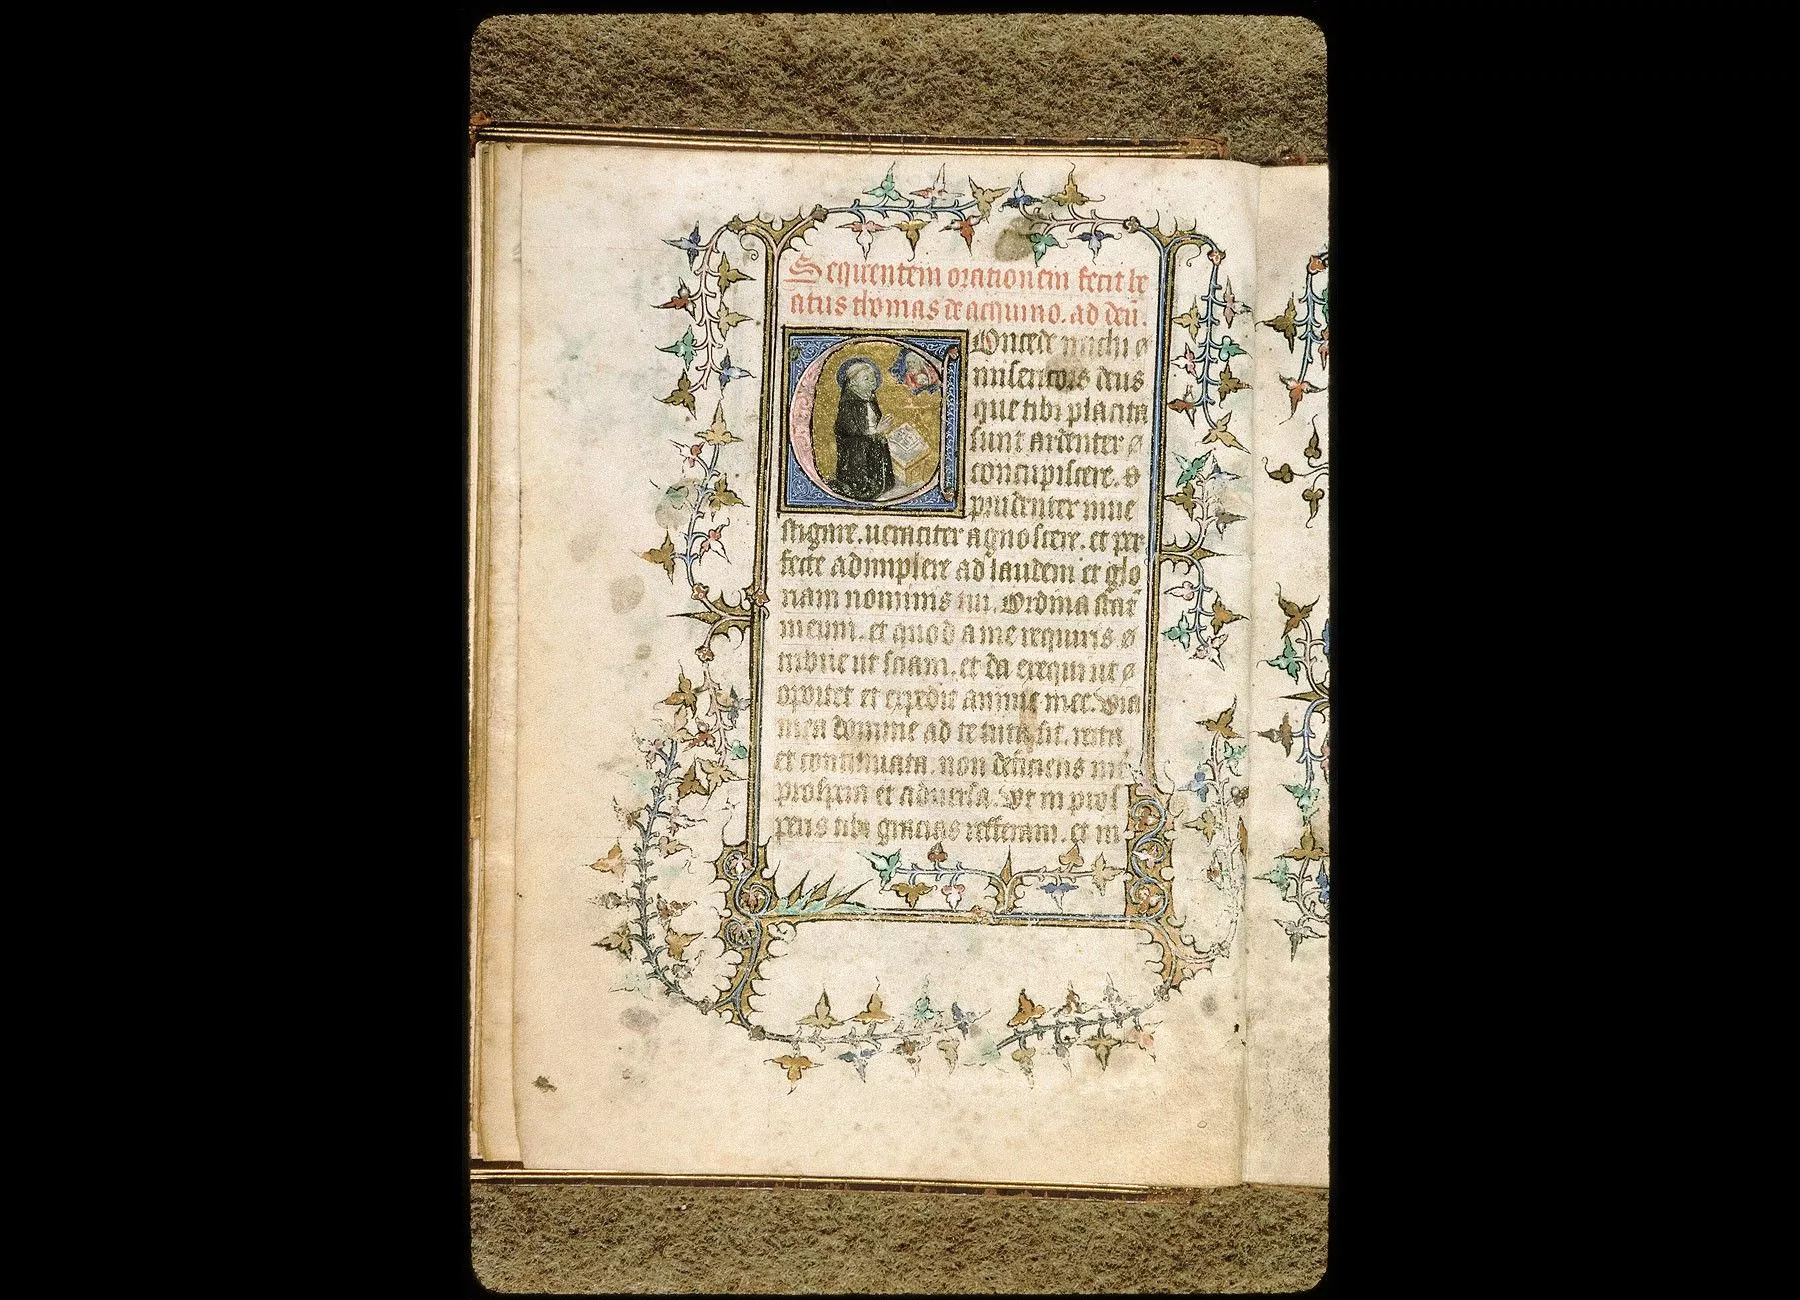 Sequentem orationem fecit be
atus thomas de acquino. ad deū.
Concede michi
misericors deus
que tibi placita
sunt ardenter
concupiscere. &
prudenter inue
stigare. ueraciter agnoscere. et per
fecte adimplere ad laudem et glo
riam nominis tui. Ordina statū
meum. et quod a me requiris
tribue ut sciam. et da exequi ut
oportet et expedit anime mee. Via
mea domine ad te tuta sit. recta
et continuata. non deficiens int
prospera et aduersa. Vt in pros
peris tibi gracias refferam. et in